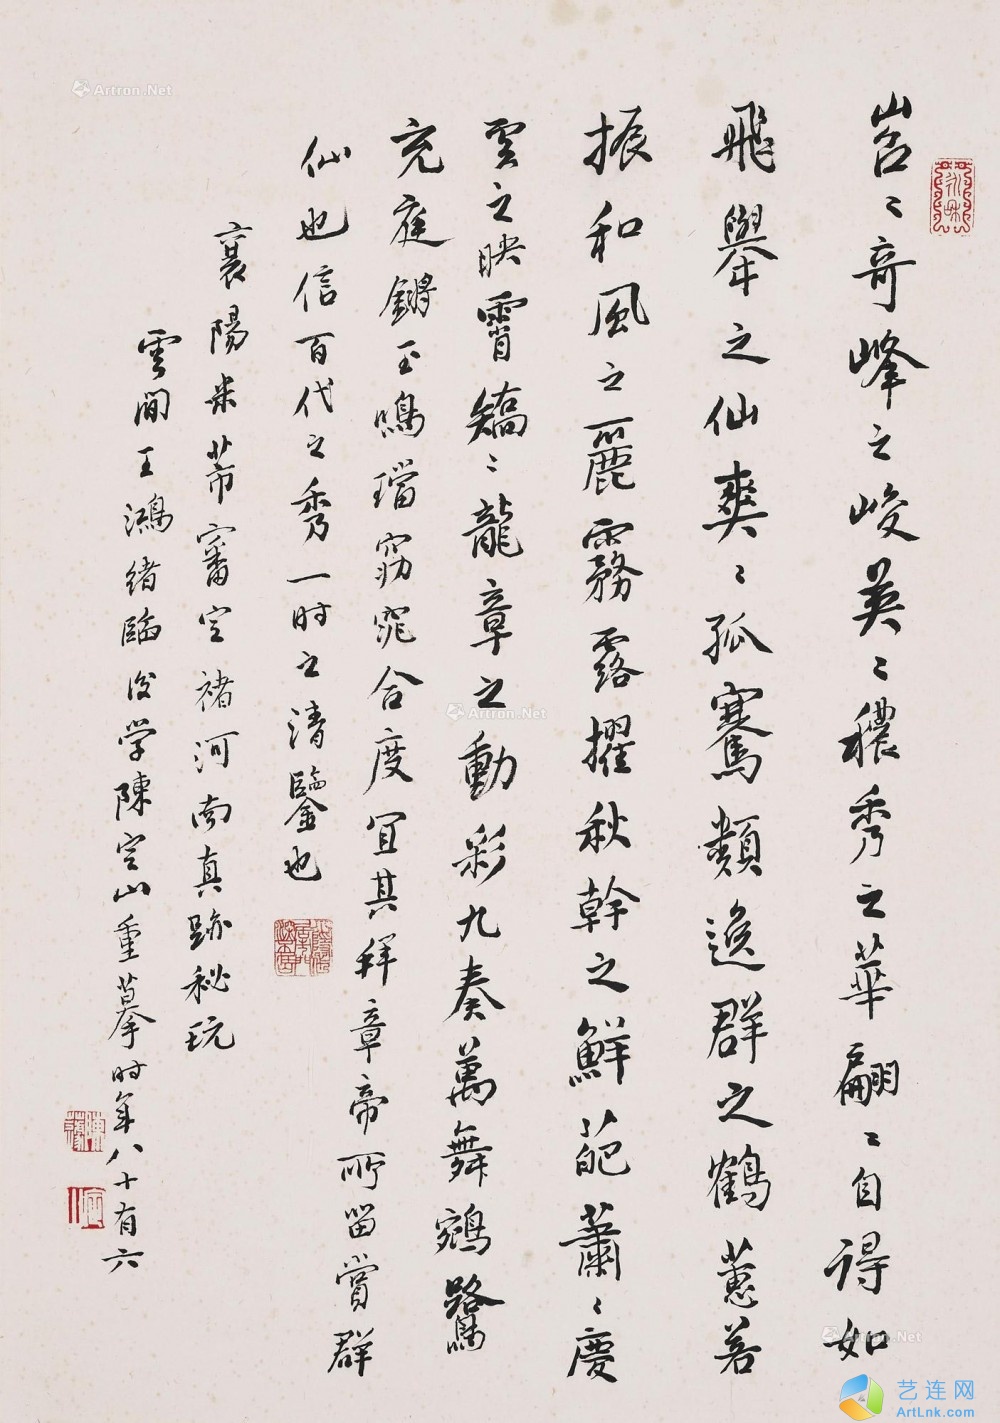 岧〻奇峰之峻英〻穠秀之華翩〻自得如
飛舉之仙爽〻孤騫類逸群之鶴蕙若
振和風之麗霧露擢秋幹之鮮葩蕭〻慶
雲之映霄矯〻龍章之動彩九奏萬舞鵷鷺
充庭鏘玉鳴璫窈窕合度宜其拜章帝所留賞群
仙也信百代之秀一时之清鑒也
襄陽米芾審定褚河南真跡秘玩
雲間王鴻緒臨後学陳定山重摹时年八十有六
Artron.Net
Artron.Net
Artron.Net
艺连网
ArtLnk.com